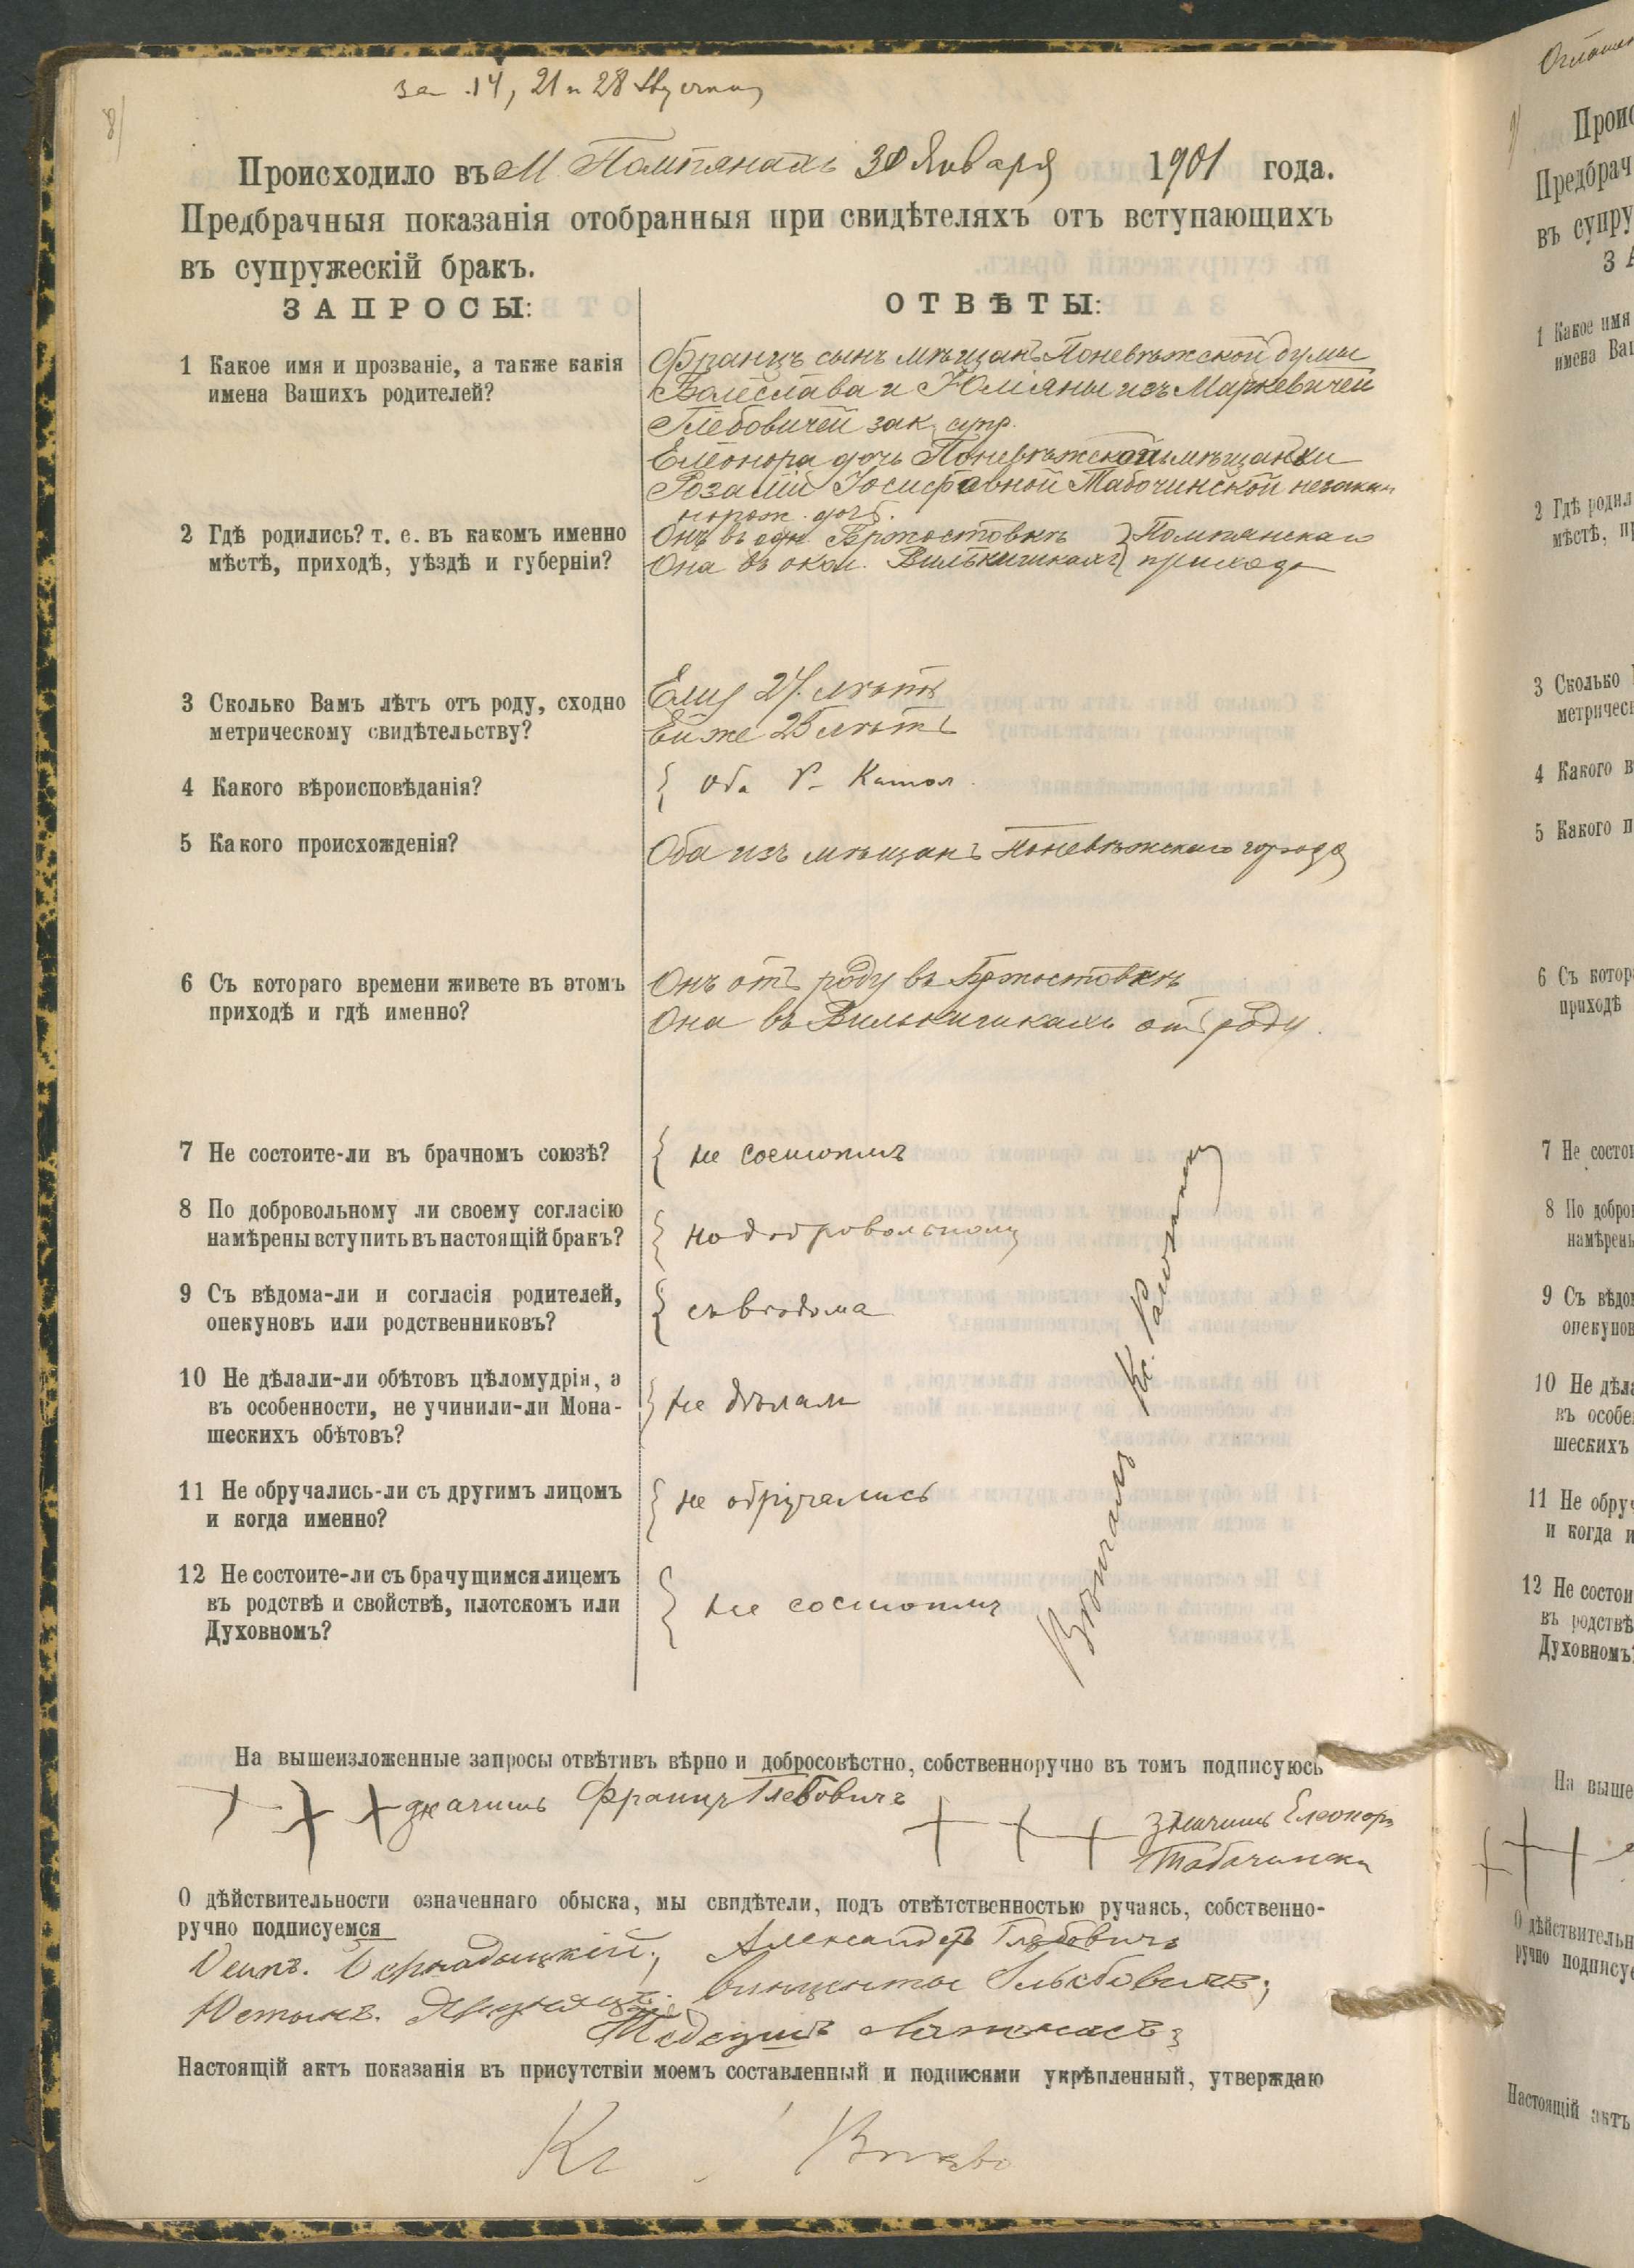 8)
за 14, 21 и 28
Происходило въ М Помпянахъ 30 Января 1901 года.
Предбрачныя показанія отобранныя при свидѣтеляхъ отъ вступающихъ
въ супружескій бракъ.
ЗАПРОСЫ:
ОТВѢТЫ:
1 Какое имя и прозваніе, а также какія
имена Вашихъ родителей?
Францъ сынъ мѣщанъ Поневѣжской думы
Болеслава и Юліяны изъ Маркевичей
Глебовичей зак. супр.
Елеонора дочь Поневѣжской мѣщанки
Розаліи Іосифовной Табочинской незакон
норож. дочь.
2 Гдѣ родились? т. е. въ какомъ именно
мѣстѣ, приходѣ, уѣздѣ и губерніи?
Онъ въ Бржостовкѣ } Помпянскаго
Она въ окол. Вилькишкахъ } прихода
3 Сколько Вамъ лѣтъ отъ роду, сходно
метрическому свидѣтельству?
Ему 27 лѣтъ
Ей же 25 лѣтъ
4 Какого вѣроисповѣданія?
{ Оба Р- Катол.
5 Какого происхожденія?
Оба изъ мѣщанъ Поневѣжскаго города
6 Съ котораго времени живете въ этомъ
приходѣ и гдѣ именно?
Онъ отъ роду въ Бржостовкѣ
Она въ Вилькишкахъ отъ роду.
7 Не состоите-ли въ брачномъ союзѣ?
{ не состоимъ
8 По добровольному ли своему согласію
намѣрены вступить въ настоящій бракъ?
{ по добровольному
9 Съ вѣдома-ли и согласія родителей,
опекуновъ или родственниковъ?
{ съ вѣдома
10 Не дѣлали-ли обѣтовъ цѣломудрія, а
въ особенности, не учинили-ли Мона-
шескихъ обѣтовъ?
} не дѣлали
11 Не обручались-ли съ другимъ лицомъ
и когда именно?
{ не обручались
12 Не состоите-ли съ брачущимся лицемъ
въ родствѣ и свойствѣ, плотскомъ или
Духовномъ?
{ не состоимъ
Вѣнчалъ Кс.
На вышеизложенные запросы отвѣтивъ вѣрно и добросовѣстно, собственноручно въ томъ подписуюсь
+ + + значитъ Францъ Глебовичъ
+ + + значитъ Елеонора
Табочинска
О дѣйствительности означеннаго обыска, мы свидѣтели, подъ отвѣтственностью ручаясь, собственно-
ручно подписуемся
Осипъ. Александръ Глебовичъ
Юстынъ. Винцентые
Тадеушъ
Настоящій актъ показанія въ присутствіи моемъ составленный и подписями укрѣпленный, утверждаю
Кс
Проис
Предбрач
въ супру
1 Какое имя
имена Ваш
2 Гдѣ родил
мѣстѣ, пр
3 Сколько
метричес
4 Какого в
5 Какого п
6 Съ котор
приходѣ
7 Не состои
8 По добро
намѣрены
9 Съ вѣдо
опекунов
10 Не дѣла
въ особе
шескихъ
11 Не обруч
и когда и
12 Не состои
въ родствѣ
Духовномъ?
На выше
О дѣйствительн
ручно подписуе
Настоящій актъ